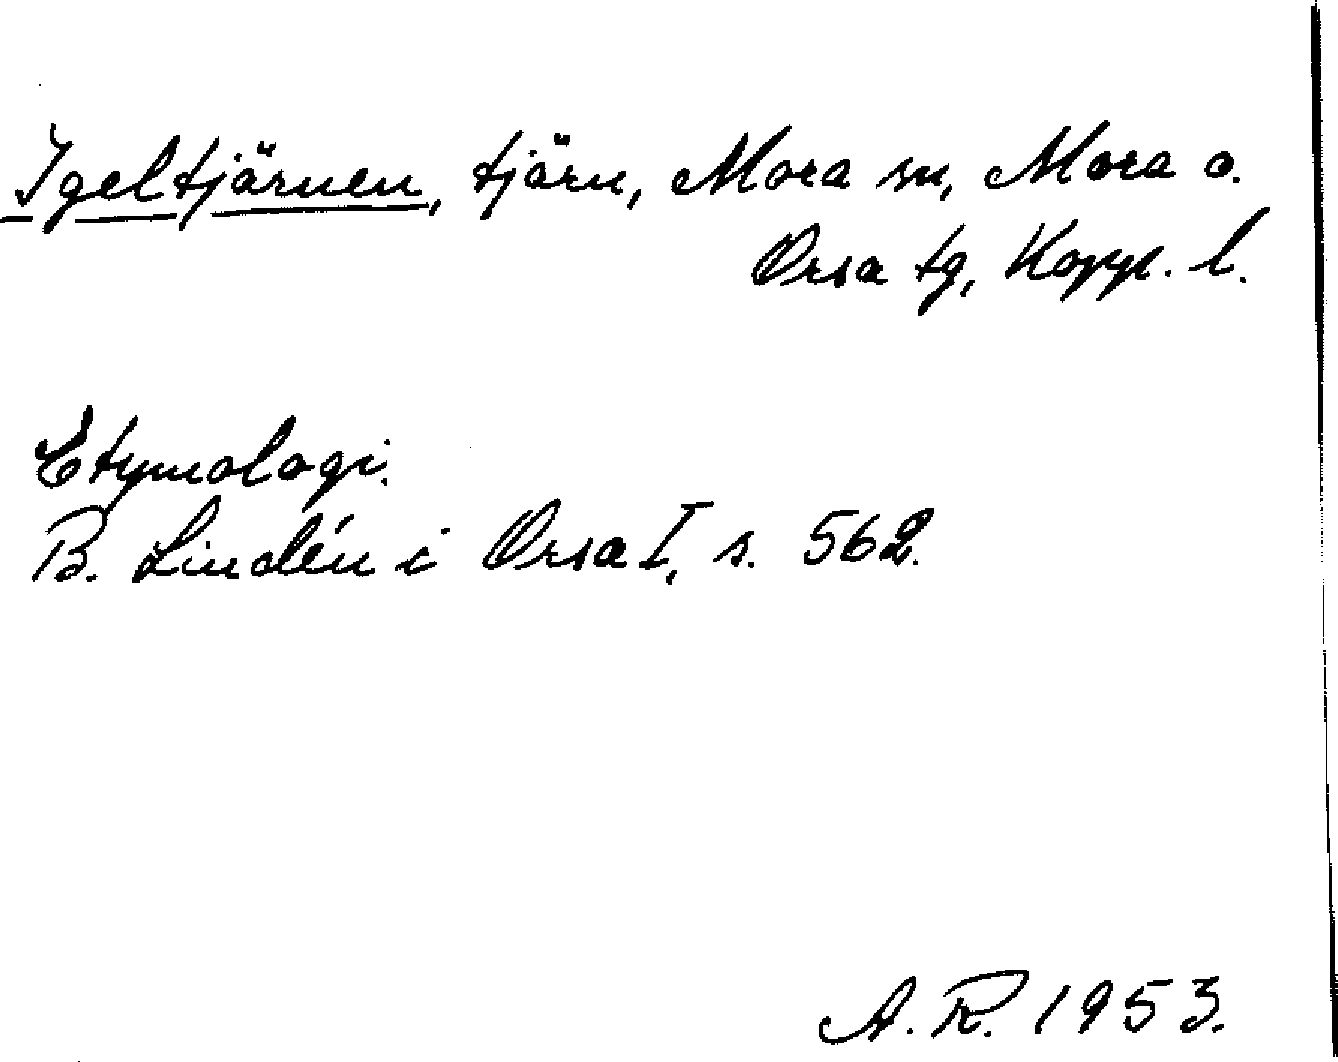 Igeltjärnen, tjärn, Mora sn, Mora o.
Orsa tg, Kopp. l.
Etymologi.
B. Lindén i Orsa I, s. 562.
A. R. 1953.